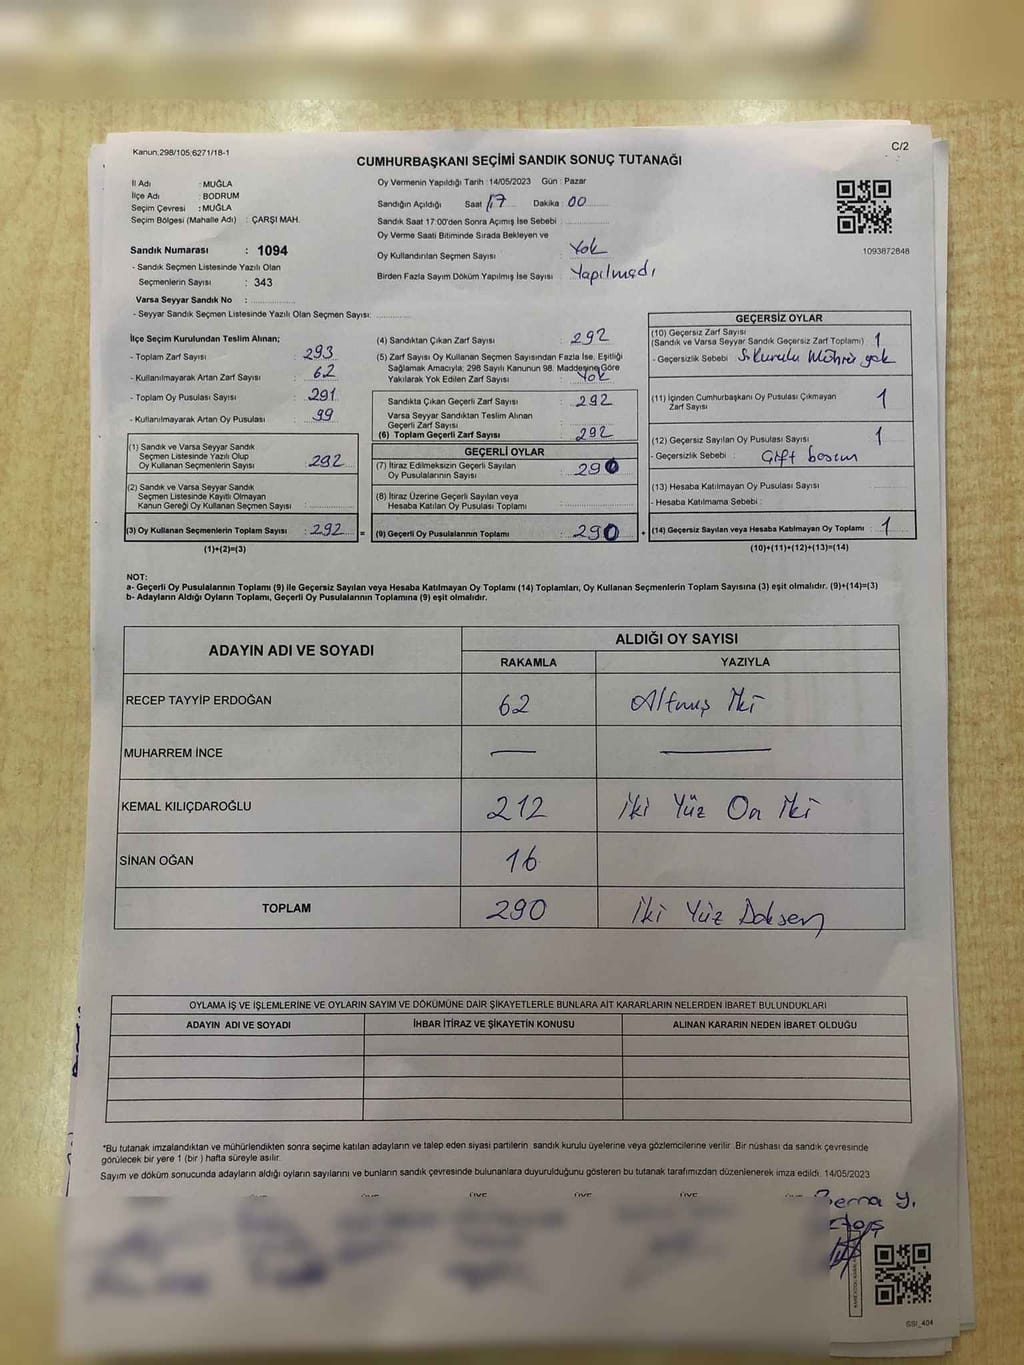 Kanun,298/105,6271/18-1
C/2
CUMHURBAŞKANI SEÇİMİ SANDIK SONUÇ TUTANAĞI
İl Adı : MUĞLA
İlçe Adı : BODRUM
Seçim Çevresi : MUĞLA
Seçim Bölgesi (Mahalle Adı) : ÇARŞI MAH.
Sandık Numarası : 1094
- Sandık Seçmen Listesinde Yazılı Olan
Seçmenlerin Sayısı : 343
Varsa Seyyar Sandık No :
- Seyyar Sandık Seçmen Listesinde Yazılı Olan Seçmen Sayısı:
Oy Vermenin Yapıldığı Tarih : 14/05/2023 Gün : Pazar
Sandığın Açıldığı Saat 17 Dakika : 00
Sandık Saat 17:00'den Sonra Açımış İse Sebebi :
Oy Verme Saati Bitiminde Sırada Bekleyen ve
Oy Kullandırılan Seçmen Sayısı : Yok
Birden Fazla Sayım Döküm Yapılmış İse Sayısı : Yapılmadı
1093872848
İlçe Seçim Kurulundan Teslim Alınan;
- Toplam Zarf Sayısı : 293
- Kullanılmayarak Artan Zarf Sayısı : 62
- Toplam Oy Pusulası Sayısı : 291
- Kullanılmayarak Artan Oy Pusulası : 99
(1) Sandık ve Varsa Seyyar Sandık
Seçmen Listesinde Yazılı Olup
Oy Kullanan Seçmenlerin Sayısı : 292
(2) Sandık ve Varsa Seyyar Sandık
Seçmen Listesinde Kayıtlı Olmayan
Kanun Gereği Oy Kullanan Seçmen Sayısı :
(3) Oy Kullanan Seçmenlerin Toplam Sayısı : 292 =
(1)+(2)=(3)
(4) Sandıktan Çıkan Zarf Sayısı : 292
(5) Zarf Sayısı Oy Kullanan Seçmen Sayısından Fazla İse, Eşitliği
Sağlamak Amacıyla; 298 Sayılı Kanunun 98. Maddesine Göre
Yakılarak Yok Edilen Zarf Sayısı : Yok
Sandıkta Çıkan Geçerli Zarf Sayısı : 292
Varsa Seyyar Sandıktan Teslim Alınan
Geçerli Zarf Sayısı :
(6) Toplam Geçerli Zarf Sayısı : 292
GEÇERLİ OYLAR
(7) İtiraz Edilmeksizin Geçerli Sayılan
Oy Pusulasının Sayısı : 290
(8) İtiraz Üzerine Geçerli Sayılan veya
Hesaba Katılan Oy Pusulası Toplamı :
(9) Geçerli Oy Pusulalarının Toplamı : 290 +
GEÇERSİZ OYLAR
(10) Geçersiz Zarf Sayısı
(Sandık ve Varsa Seyyar Sandık Geçersiz Zarf Toplamı) : 1
- Geçersizlik Sebebi : S. Kurulu Mührü yok
(11) İçinden Cumhurbaşkanı Oy Pusulası Çıkmayan
Zarf Sayısı : 1
(12) Geçersiz Sayılan Oy Pusulası Sayısı : 1
- Geçersizlik Sebebi : Çift basım
(13) Hesaba Katılmayan Oy Pusulası Sayısı :
- Hesaba Katılmama Sebebi :
(14) Geçersiz Sayılan veya Hesaba Katılmayan Oy Toplamı : 1
(10)+(11)+(12)+(13)=(14)
NOT:
a- Geçerli Oy Pusulalarının Toplamı (9) ile Geçersiz Sayılan veya Hesaba Katılmayan Oy Toplamı (14) Toplamları, Oy Kullanan Seçmenlerin Toplam Sayısına (3) eşit olmalıdır. (9)+(14)=(3)
b- Adayların Aldığı Oyların Toplamı, Geçerli Oy Pusulalarının Toplamına (9) eşit olmalıdır.
ADAYIN ADI VE SOYADI
ALDIĞI OY SAYISI
RAKAMLA YAZIYLA
RECEP TAYYİP ERDOĞAN 62 Altmış İki
MUHARREM İNCE — —
KEMAL KILIÇDAROĞLU 212 İki Yüz On İki
SİNAN OĞAN 16
TOPLAM 290 İki Yüz Doksan
OYLAMA İŞ VE İŞLEMLERİNE VE OYLARIN SAYIM VE DÖKÜMÜNE DAİR ŞİKAYETLERLE BUNLARA AİT KARARLARIN NELERDEN İBARET BULUNDUKLARI
ADAYIN ADI VE SOYADI İHBAR İTİRAZ VE ŞİKAYETİN KONUSU ALINAN KARARIN NEDEN İBARET OLDUĞU
*Bu tutanak imzalandıktan ve mühürlendikten sonra seçime katılan adayların ve talep eden siyasi partilerin sandık kurulu üyelerine veya gözlemcilerine verilir. Bir nüshası da sandık çevresinde
görülecek bir yere 1 (bir ) hafta süreyle asılır.
Sayım ve döküm sonucunda adayların aldığı oyların sayılarını ve bunların sandık çevresinde bulunanlara duyurulduğunu gösteren bu tutanak tarafımızdan düzenlenerek imza edildi. 14/05/2023
ÜYE ÜYE ÜYE ÜYE ÜYE
Berna Y.
SSI_404